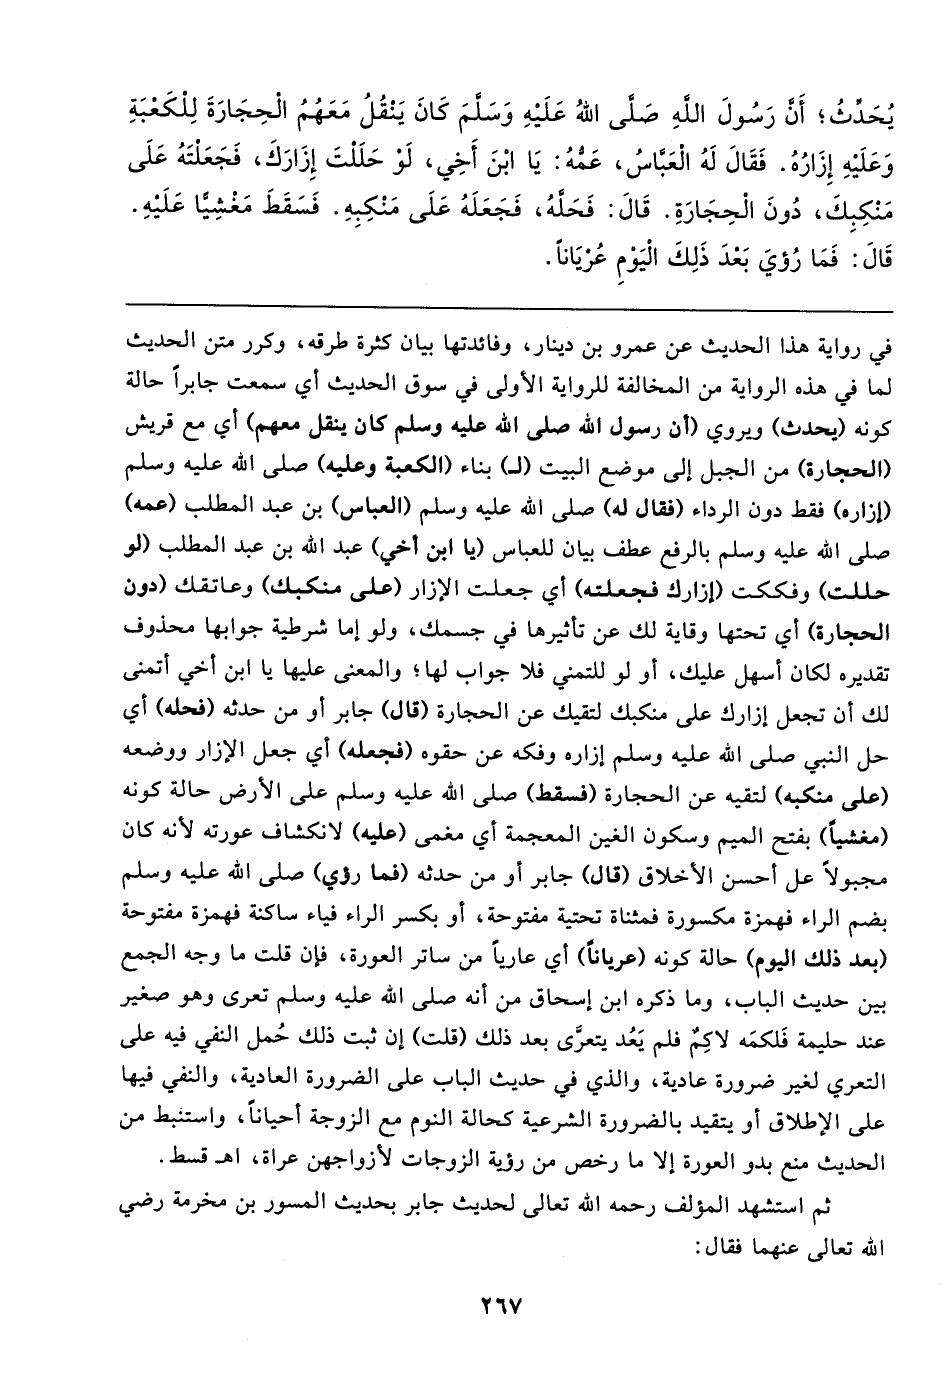 يُحَدِّثُ؛ أَنَّ رَسُولَ اللَّهِ صَلَّى اللهُ عَلَيْهِ وَسَلَّمَ كَانَ يَنْقُلُ مَعَهُمُ الْحِجَارَةَ لِلْكَعْبَةِ
وَعَلَيْهِ إِزَارُهُ. فَقَالَ لَهُ الْعَبَّاسُ، عَمُّهُ: يَا ابْنَ أَخِي، لَوْ حَلَلْتَ إِزَارَكَ، فَجَعَلْتَهُ عَلَى
مَنْكِبِكَ، دُونَ الْحِجَارَةِ. قَالَ: فَحَلَّهُ، فَجَعَلَهُ عَلَى مَنْكِبِهِ. فَسَقَطَ مَغْشِيًّا عَلَيْهِ.
قَالَ: فَمَا رُؤيَ بَعْدَ ذَلِكَ الْيَوْمِ عُرْيَاناً.
في رواية هذا الحديث عن عمرو بن دينار، وفائدتها بيان كثرة طرقه، وكرر متن الحديث
لما في هذه الرواية من المخالفة للرواية الأولى في سوق الحديث أي سمعت جابراً حالة
كونه (يحدث) ويروي (أن رسول الله صلى الله عليه وسلم كان ينقل معهم) أي مع قريش
(الحجارة) من الجبل إلى موضع البيت (لـ) بناء (الكعبة وعليه) صلى الله عليه وسلم
(إزاره) فقط دون الرداء (فقال له) صلى الله عليه وسلم (العباس) بن عبد المطلب (عمه)
صلى الله عليه وسلم بالرفع عطف بيان للعباس (يا ابن أخي) عبد الله بن عبد المطلب (لو
حللت) وفككت (إزارك فجعلته) أي جعلت الإزار (على منكبك) وعاتقك (دون
الحجارة) أي تحتها وقاية لك عن تأثيرها في جسمك، ولو إما شرطية جوابها محذوف
تقديره لكان أسهل عليك، أو لو للتمني فلا جواب لها؛ والمعنى عليها يا ابن أخي أتمنى
لك أن تجعل إزارك على منكبك لتقيك عن الحجارة (قال) جابر أو من حدثه (فحله) أي
حل النبي صلى الله عليه وسلم إزاره وفكه عن حقوه (فجعله) أي جعل الإزار ووضعه
(على منكبه) لتقيه عن الحجارة (فسقط) صلى الله عليه وسلم على الأرض حالة كونه
(مغشياً) بفتح الميم وسكون الغين المعجمة أي مغمى (عليه) لانكشاف عورته لأنه كان
مجبولاً عل أحسن الأخلاق (قال) جابر أو من حدثه (فما رؤي) صلى الله عليه وسلم
بضم الراء فهمزة مكسورة فمثناة تحتية مفتوحة، أو بكسر الراء فياء ساكنة فهمزة مفتوحة
(بعد ذلك اليوم) حالة كونه (عرياناً) أي عارياً من ساتر العورة، فإن قلت ما وجه الجمع
بين حديث الباب، وما ذكره ابن إسحاق من أنه صلى الله عليه وسلم تعرى وهو صغير
عند حليمة فَلكمَه لاكِمٌ فلم يَعُد يتعرَّى بعد ذلك (قلت) إن ثبت ذلك حُمل النفي فيه على
التعري لغير ضرورة عادية، والذي في حديث الباب على الضرورة العادية، والنفي فيها
على الإطلاق أو يتقيد بالضرورة الشرعية كحالة النوم مع الزوجة أحياناً، واستنبط من
الحديث منع بدو العورة إلا ما رخص من رؤية الزوجات لأزواجهن عراة، اهـ قسط.
ثم استشهد المؤلف رحمه الله تعالى لحديث جابر بحديث المسور بن مخرمة رضي
الله تعالى عنهما فقال:
٢٦٧